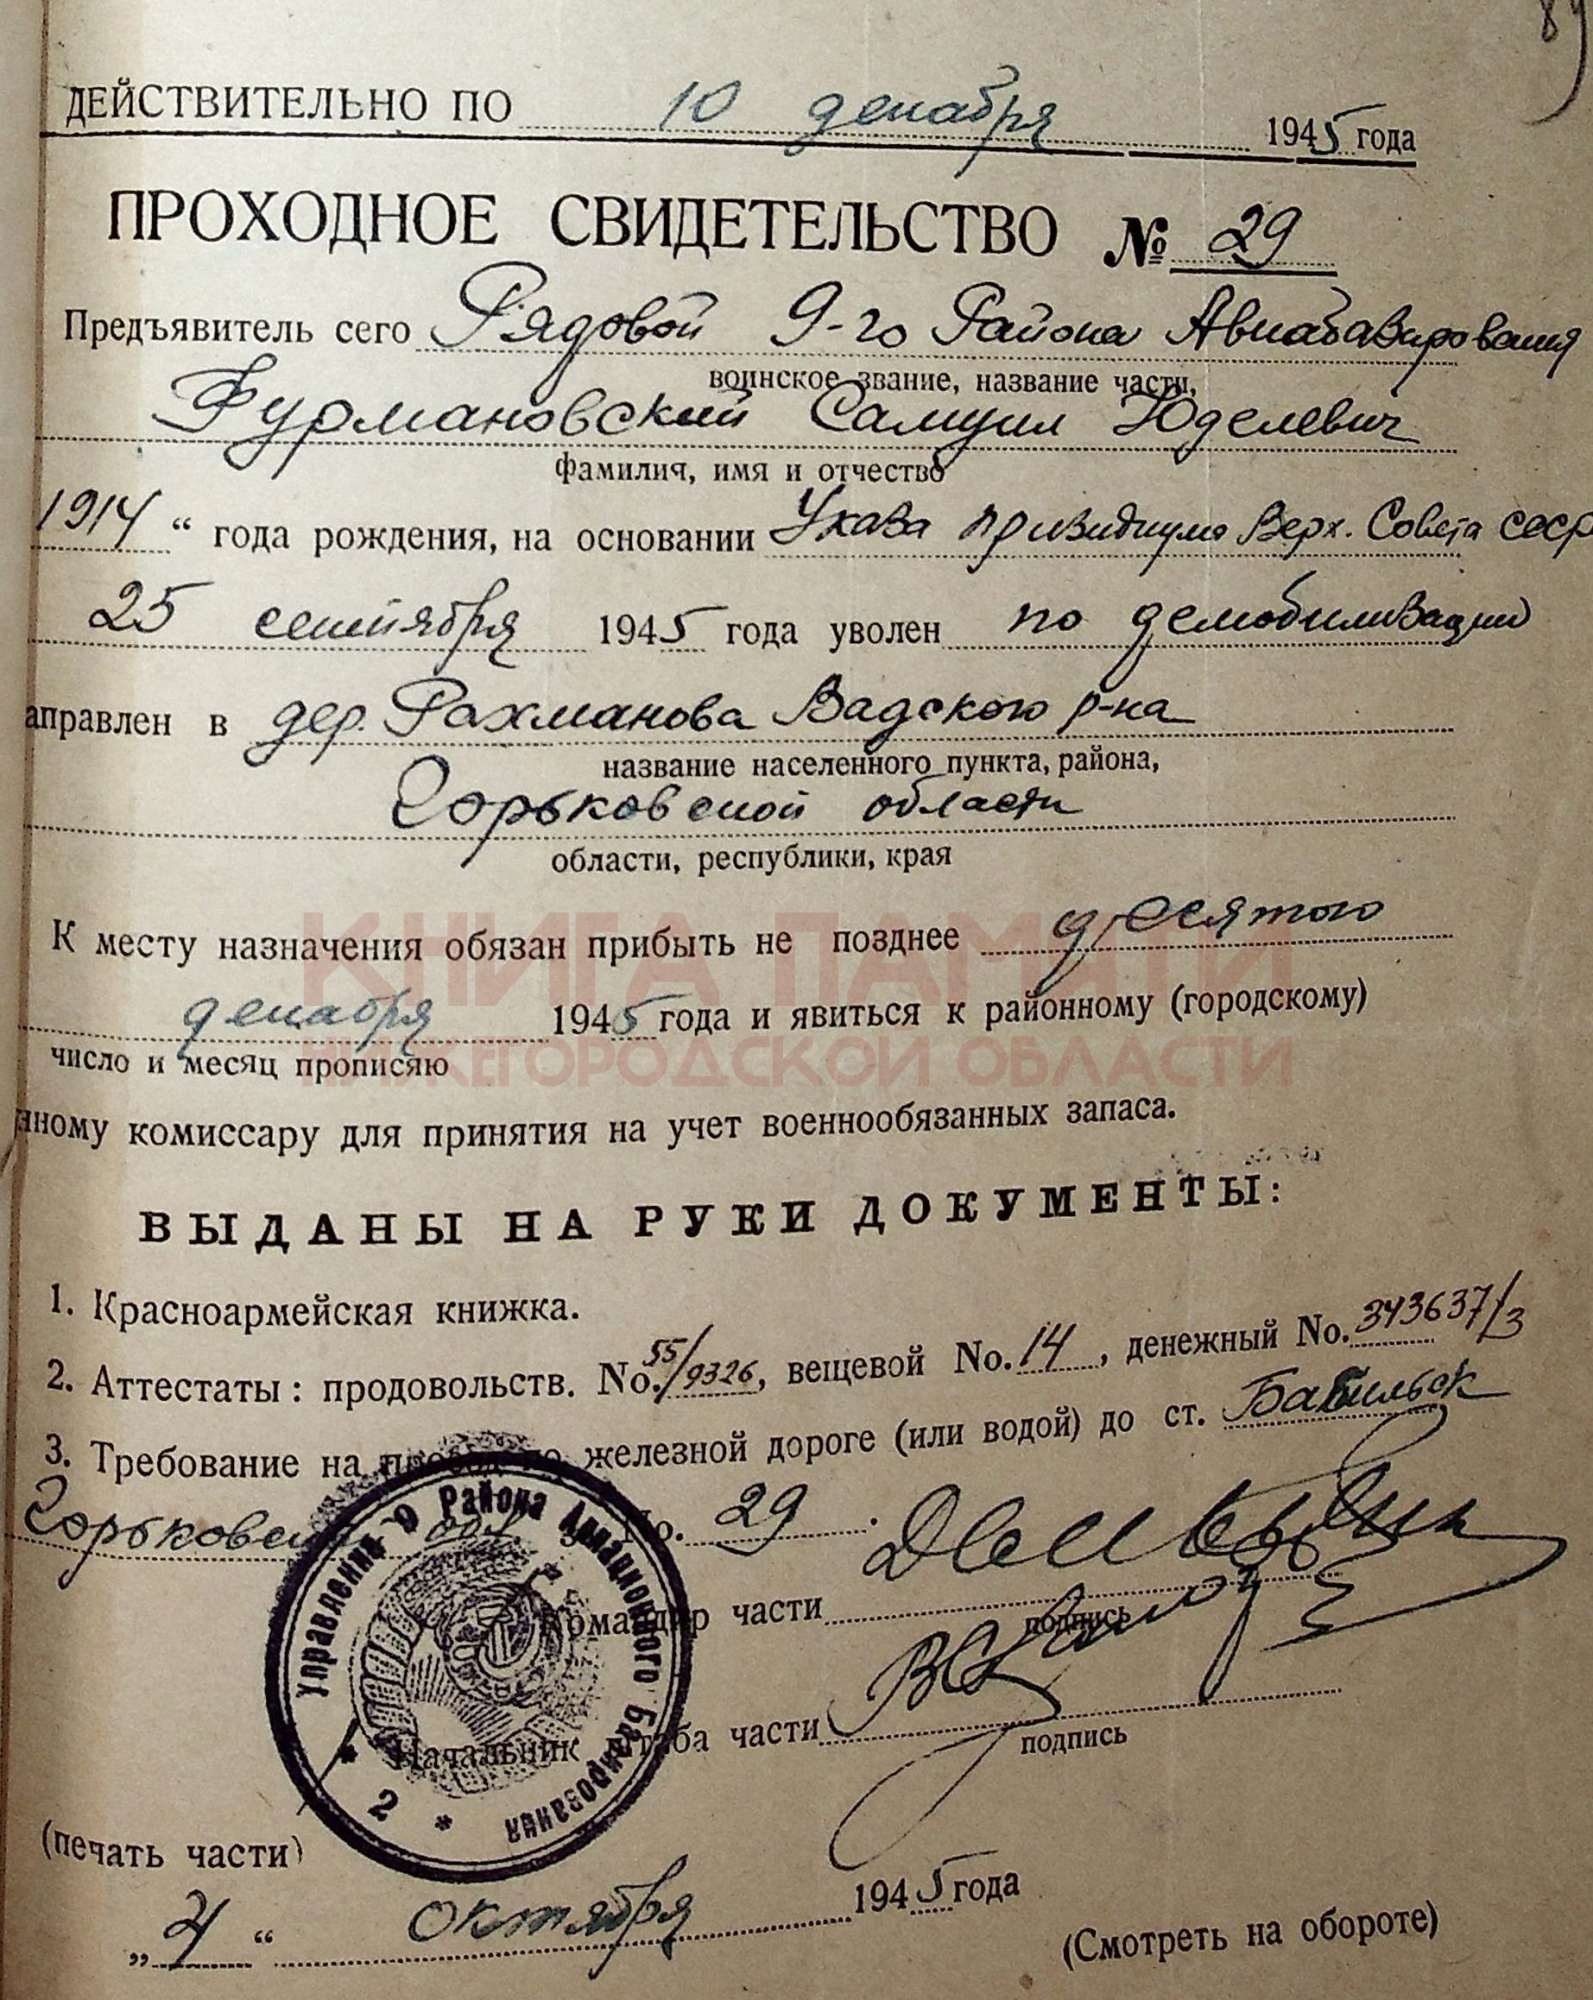 89
ДЕЙСТВИТЕЛЬНО ПО 10 декабря 1945 года
ПРОХОДНОЕ СВИДЕТЕЛЬСТВО № 29
Предъявитель сего Рядовой 9-го Района Авиабазирования
воинское звание, название части,
Фурмановский Самуил Юделевич
фамилия, имя и отчество
1914 “ года рождения, на основании Указа призидиума Верх. Совета СССР
25 сентября 1945 года уволен по демобилизации
аправлен в дер. Рахманова Вадского р-на
название населенного пункта, района,
Горьковской области
области, республики, края
К месту назначения обязан прибыть не позднее десятого
декабря 1945 года и явиться к районному (городскому)
число и месяц прописяю
нному комиссару для принятия на учет военнообязанных запаса.
КНИГА ПАМЯТИ
НИЖЕГОРОДСКОЙ ОБЛАСТИ
ВЫДАНЫ НА РУКИ ДОКУМЕНТЫ:
1. Красноармейская книжка.
2. Аттестаты: продовольств. No. 55/9326, вещевой No. 14, денежный No. 343637/3
3. Требование на проезд по железной дороге (или водой) до ст.
Горьковской обл No. 29.
Командир части
подпись
Начальник штаба части
подпись
Управление 9 Района Авиационного Базирования
* 2 *
(печать части)
„4“ октября 1945 года
(Смотреть на обороте)